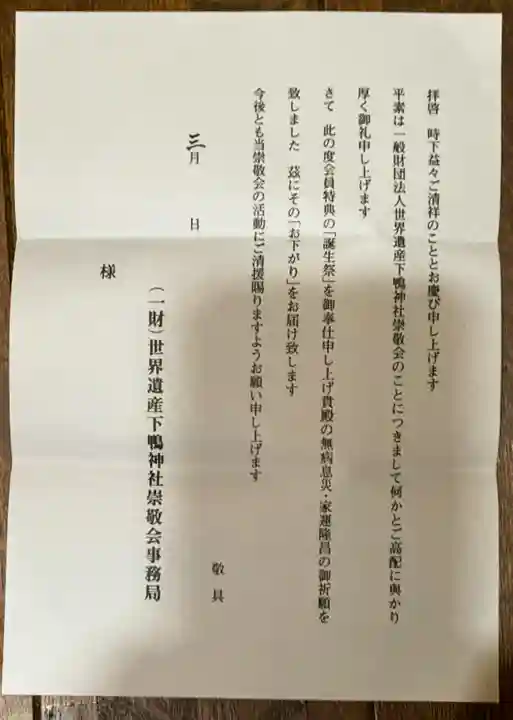 拝啓　時下益々ご清祥のこととお慶び申し上げます
平素は一般財団法人世界遺産下鴨神社崇敬会のことにつきまして何かとご高配に与かり
厚く御礼申し上げます
さて　此の度会員特典の「誕生祭」を御奉仕申し上げ貴殿の無病息災・家運隆昌の御祈願を
致しました　茲にその「お下がり」をお届け致します
今後とも当崇敬会の活動にご清援賜りますようお願い申し上げます
敬具
三月　日
（一財）世界遺産下鴨神社崇敬会事務局
様